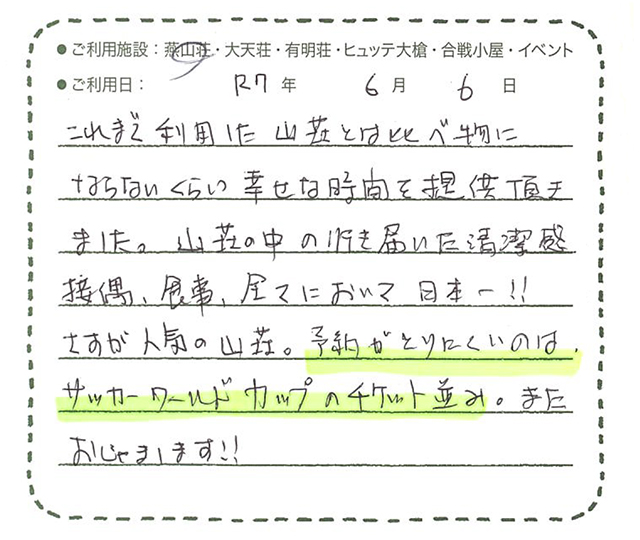 ●ご利用施設：燕山荘・大天荘・有明荘・ヒュッテ大槍・合戦小屋・イベント
●ご利用日： R7 年 6 月 6 日
これまで利用した山荘とは比べ物に
ならないくらい幸せな時間を提供頂き
ました。山荘の中の行き届いた清潔感
接偶、食事、全てにおいて日本一!!
さすが人気の山荘。予約がとりにくいのは、
サッカーワールドカップのチケット並み。また
おじゃまします!!